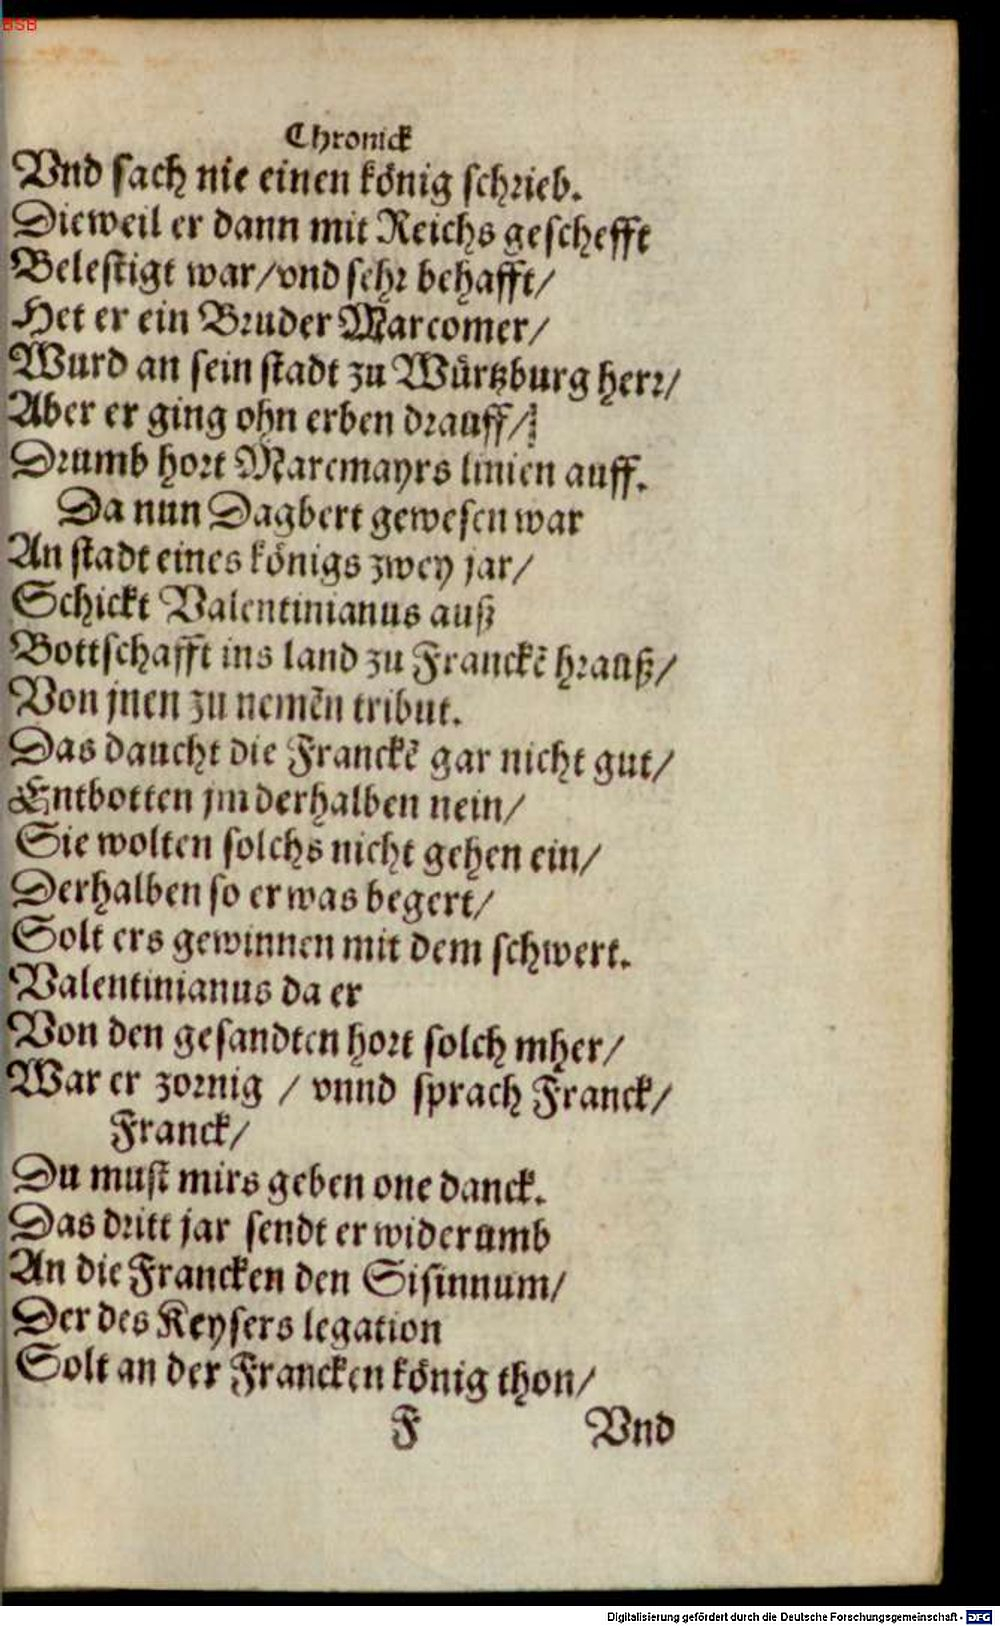 BSB
Chronick
Vnd sach nie einen könig schrieb.
Dieweil er dann mit Reichs geschefft
Belestigt war/vnd sehr behafft/
Het er ein Bruder Marcomer/
Wurd an sein stadt zu Würtzburg herr/
Aber er ging ohn erben drauff/
Drumb hort Marcmayrs linien auff.
Da nun Dagbert gewesen war
An stadt eines königs zwey jar/
Schickt Valentinianus auß
Bottschafft ins land zu Franckē hrauß/
Von jnen zu nemēn tribut.
Das daucht die Franckē gar nicht gut/
Entbotten jm derhalben nein/
Sie wolten solchs nicht gehen ein/
Derhalben so er was begert/
Solt ers gewinnen mit dem schwert.
Valentinianus da er
Von den gesandten hort solch mher/
War er zornig / vnnd sprach Franck/
Franck/
Du must mirs geben one danck.
Das dritt jar sendt er widerumb
An die Francken den Sisinnum/
Der des Keysers legation
Solt an der Francken könig thon/
F Vnd
Digitalisierung gefördert durch die Deutsche Forschungsgemeinschaft - DFG